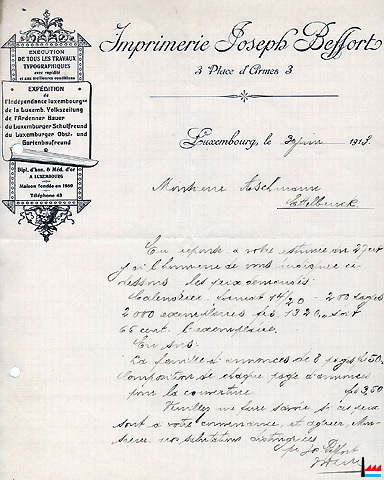 EXÉCUTION
DE TOUS LES TRAVAUX
TYPOGRAPHIQUES
avec rapidité
et aux meilleures conditions
EXPÉDITION
de
l'Indépendance luxembourgse
de la Luxemb. Volkszeitung
de l'Ardenner Bauer
du Luxemburger Schulfreund
du Luxemburger Obst- und
Gartenbaufreund
Dipl. d'hon. & Méd. d'or
A LUXEMBOURG
Maison fondée en 1880
Téléphone 43
Imprimerie Joseph Beffort
3 Place d'Armes 3
Luxembourg, le 3 juin 1913.
Monsieur Aschmann
Ettelbruck
En réponse à votre estimée du 27 ct
j'ai l'honneur de vous indiquer ci-
dessous les prix demandés:
Calendrier, format 14/20 - 200 pages
2000 exemplaires frs. 1320,- soit
66 cent. l'exemplaire.
En sus:
La feuille d'annonces de 8 pages frs 50.
Composition de chaque page d'annonces
pour la couverture frs 3,50
Veuillez me faire savoir si ces prix
sont à votre convenance, et agréer, Mon-
sieur, mes salutations distinguées
pr Jos Beffort